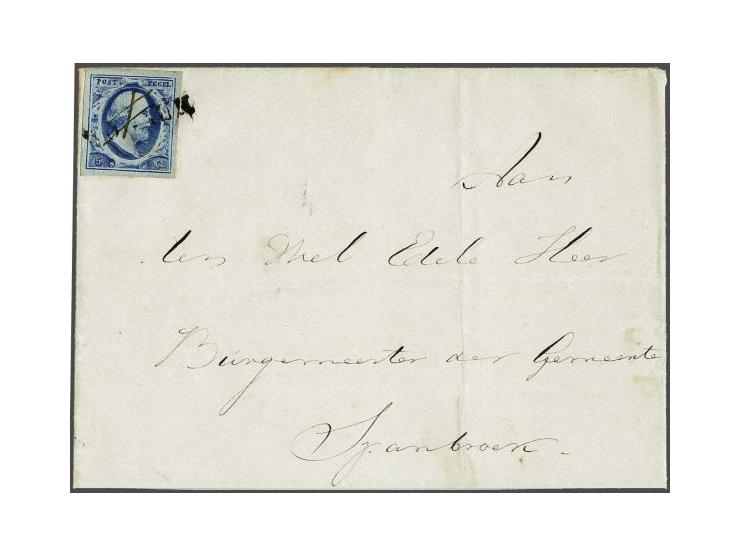 POST ZEGEL
5 C
Aan
den Wel Edele Heer
Burgemeester der Gemeente
Spanbroek.